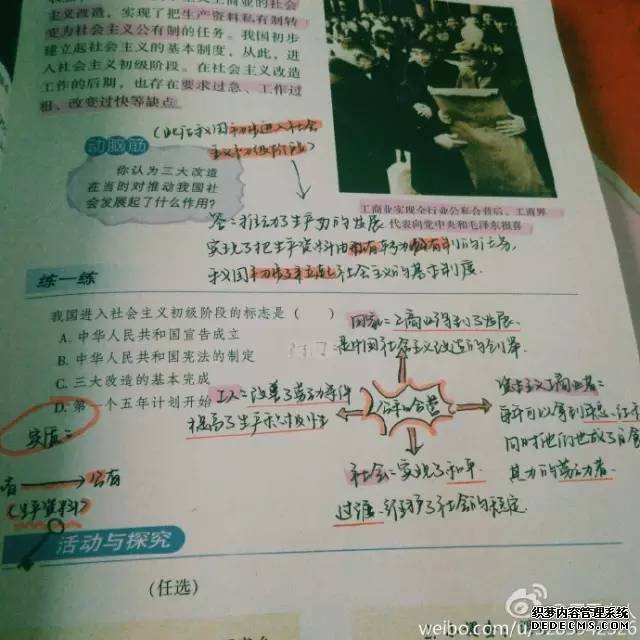 主义改造，实现了把生产资料私有制转
变为社会主义公有制的任务。我国初步
建立起社会主义的基本制度，从此，进
入社会主义初级阶段。在社会主义改造
工作的后期，也存在要求过急、工作过
粗、改变过快等缺点。
动脑筋
你认为三大改造
在当时对推动我国社
会发展起了什么作用？
工商业实现全行业公私合营后，工商界
代表向党中央和毛泽东报喜
答：推动了生产力的发展
实现了把生产资料由私有转为公有制的任务，
我国初步建立起社会主义的基本制度。
练一练
我国进入社会主义初级阶段的标志是（ ）
A. 中华人民共和国宣告成立
B. 中华人民共和国宪法的制定
C. 三大改造的基本完成
D. 第一个五年计划开始
国家：工商业得到了发展、
是中国社会主义改造的创举
工人：改善了劳动条件
提高了生产积极性
公私合营
资本主义工商业者：
同时他们也成了自食
其力的劳动者
社会：实现了和平
过渡，维护了社会的稳定
实质：
公有
（生产资料）
活动与探究
（任选）
织梦内容管理系统
DEDECMS.COM